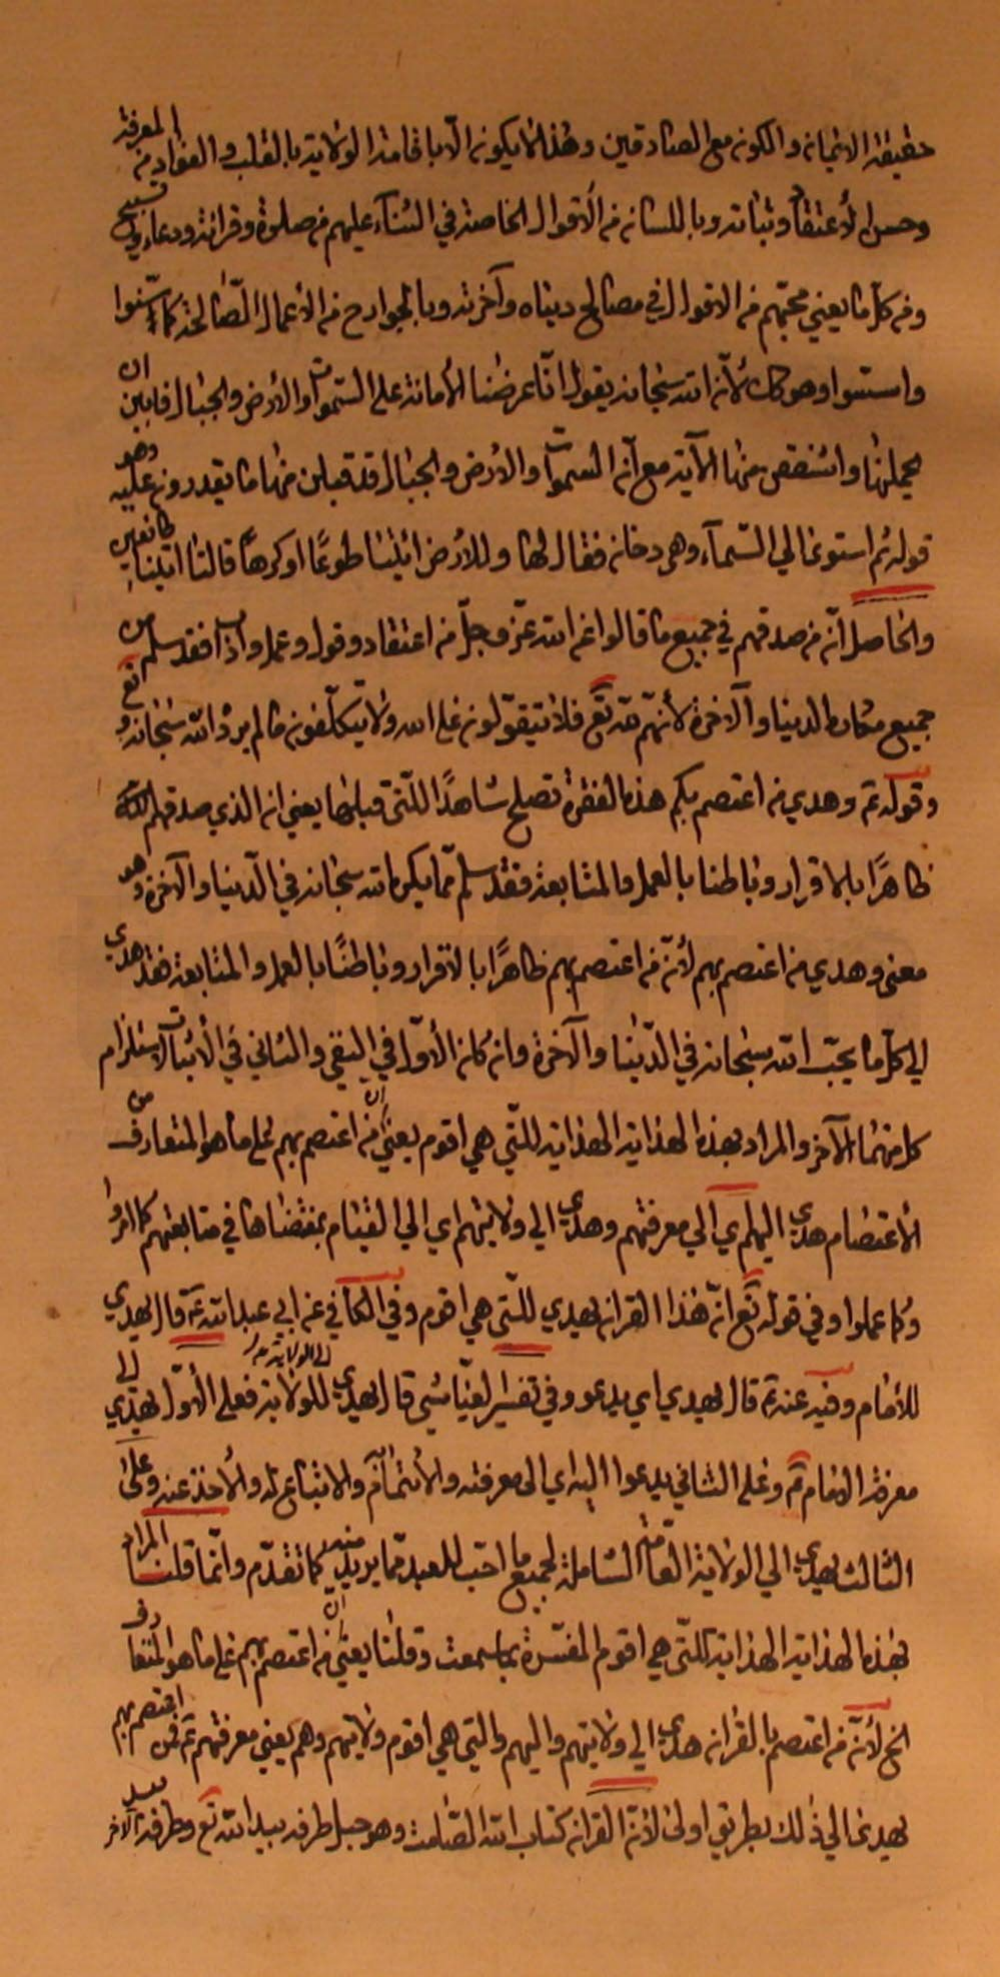 حقيقة الايمان والكون مع الصادقين وهذا لا يكون الا باقامة الولاية بالقلب والفؤاد من المعرفة
وحسن الاعتقاد وثباته وباللسان من الاقوال الخاصة في الثناء عليهم من صلوة وقرائة ودعاء وتسبيح
ومن كل ما يعني محبتهم من الاقوال في مصالح دنياه وآخرته وبالجوارح من الاعمال الصالحة كما سنوا
واستنوا وهو كك لأن الله سبحانه يقول انا عرضنا الأمانة على السموات والارض والجبال فابين ان
يحملنها واشفقن منها الآية مع ان السموات والارض والجبال قد قبلن منها ما يقدرون عليه وهو
قوله ثم استوى الي السماء وهي دخان فقال لها وللارض ائتيا طوعا او كرها قالتا اتينا طائعين
والحاصل ان من صدقهم في جميع ما قالوا عن الله عز وجل من اعتقاد وقول وعمل واداب فقد سلم من
جميع مكاره الدنيا والآخرة لأنهم عنه تع فلا يتقولون على الله ولا يتكلفون ما لم يرد الله سبحانه وتع
وقوله ع وهدي من اعتصم بكم هذه الفقرة تصلح شاهدا للتي قبلها يعني ان الذي صدقهم
ظاهرا بالاقرار وباطنا بالعمل والمتابعة فقد سلم مما يكره الله سبحانه في الدنيا والآخرة وهو
معنى وهدي من اعتصم بهم لأن من اعتصم بهم ظاهرا بالاقرار وباطنا بالعمل والمتابعة فقد هدي
الي كل ما يحب الله سبحانه في الدنيا والآخرة وان كان الأول في النفي والثاني في الاثبات لاستلزام
كل منهما الآخر والمراد بهذه الهداية الهداية للتي هي اقوم يعني ان من اعتصم بهم على ما هو المتعارف من
الاعتصام هدي اليهم اي الي معرفتهم وهدي الي ولايتهم اي الي القيام بمقتضاها في متابعتهم كما امروا
وكما عملوا وفي قوله تع ان هذا القرآن يهدي للتي هي اقوم وفي الكافي عن ابي عبدالله ع قال يهدي
للأمام وفيه عنه ع قال يهدي اي يدعو وفي تفسير العياشي قال يهدي للولاية فعلى الأول يهدي الي
الي الولاية
معرفة الامام ع وعلى الثاني يدعوا اليه اي الى معرفته والائتمام به والاتباع له والأخذ عنه وعلى
الثالث يهدي الي الولاية العامة الشاملة لجميع ما احب للعبد مما يريد منه كما تقدم وانما قلنا المراد
بهذه الهداية الهداية للتي هي اقوم المفسرة بما سمعت وقلنا يعني ان من اعتصم بهم على ما هو المتعارف
الخ لأن من اعتصم بالقرآن هدي الي ولايتهم واليهم والتي هي اقوم ولايتهم وهم يعني معرفتهم ع فمن اعتصم بهم
يهدى الي ذلك بطريق اولى لأن القرآن كتاب الله الصامت وهو حبل طرفه بيد الله تع وطرفه الآخر بيد